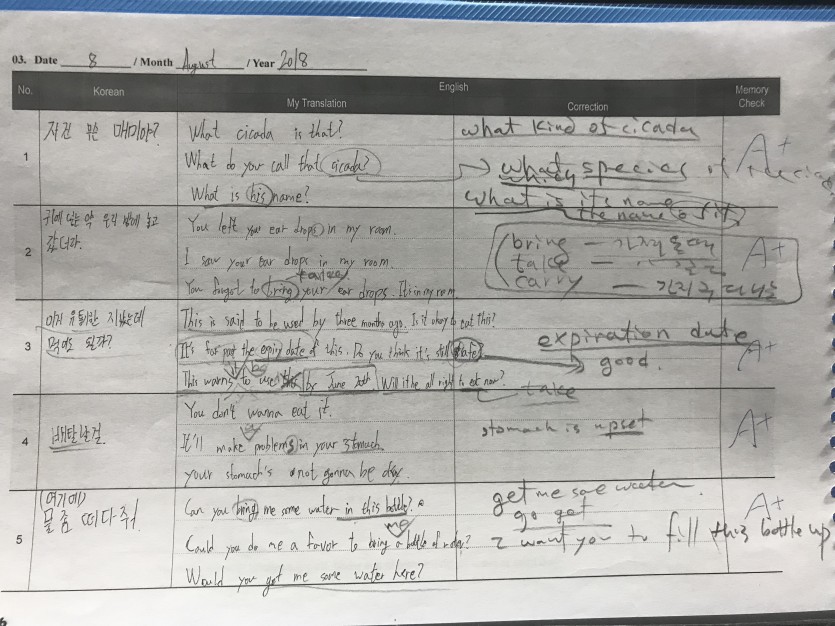 03. Date 8 / Month August / Year 2018
No. Korean English Memory Check
My Translation Correction
1
저건 무슨 매미야?
What cicada is that?
What do you call that cicada?
What is his name?
what kind of cicada
what species
what is its name
the name of it
A+
2
귀에 넣는 약 우리 방에 놓고
갔더라.
You left your ear drops in my room.
I saw your ear drops in my room.
You forgot to bring your ear drops. It's in my room.
bring — 가져올 때
take —
carry — 가지고 다니는
A+
3
이거 유통기한 지났는데
먹어도 될까?
This is said to be used by three months ago. Is it okay to eat this?
It's far past the expiry date of this. Do you think it's still safe?
This warns to use by June 20th. Will it be all right to eat now?
expiration date
good.
take
A+
4
배탈날걸.
You don't wanna eat it.
It'll make problems in your stomach.
your stomach's not gonna be okay.
stomach is upset
A+
5
(여기에)
물 좀 떠다 줘.
Can you bring me some water in this bottle?
Could you do me a favor to bring a bottle of water?
me
Would you get me some water here?
get me some water.
go get
I want you to fill this bottle up
A+